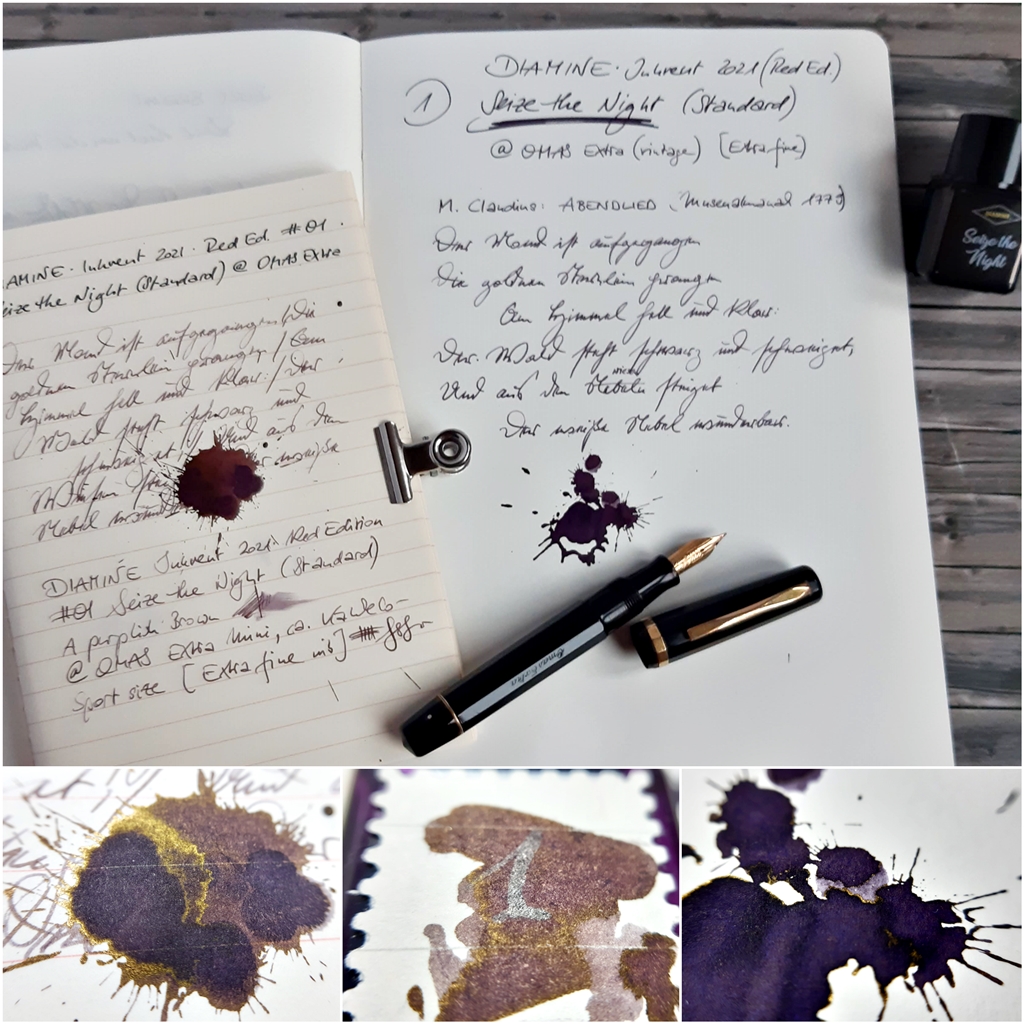 AMINE · Inkvent 2021 · Red Ed. #01 ·
eize the Night (Standard) @ OMAS Extra
Der Mond ist aufgegangen / Die
goldnen Sternlein prangen / Am
Himmel hell und klar: / Der
Wald steht schwarz und
Und aus den
weiße
Nebel
DIAMINE Inkvent 2021. Red Edition
#01 Seize the Night (Standard)
A purplish Brown
@ OMAS Extra Mini, ca. Kaweco-
Sport size [Extra fine nib]
DIAMINE · Inkvent 2021 (Red Ed.)
1 Seize the Night (Standard)
@ OMAS Extra (vintage) [Extra fine]
M. Claudius: ABENDLIED (Musenalmanach 1779)
Der Mond ist aufgegangen
Die goldnen Sternlein prangen
Am Himmel hell und klar:
Der Wald steht schwarz und schweiget,
Und aus den steiget
Der weiße Nebel wunderbar.
Omas Extra
DIAMINE
Seize the
Night
1